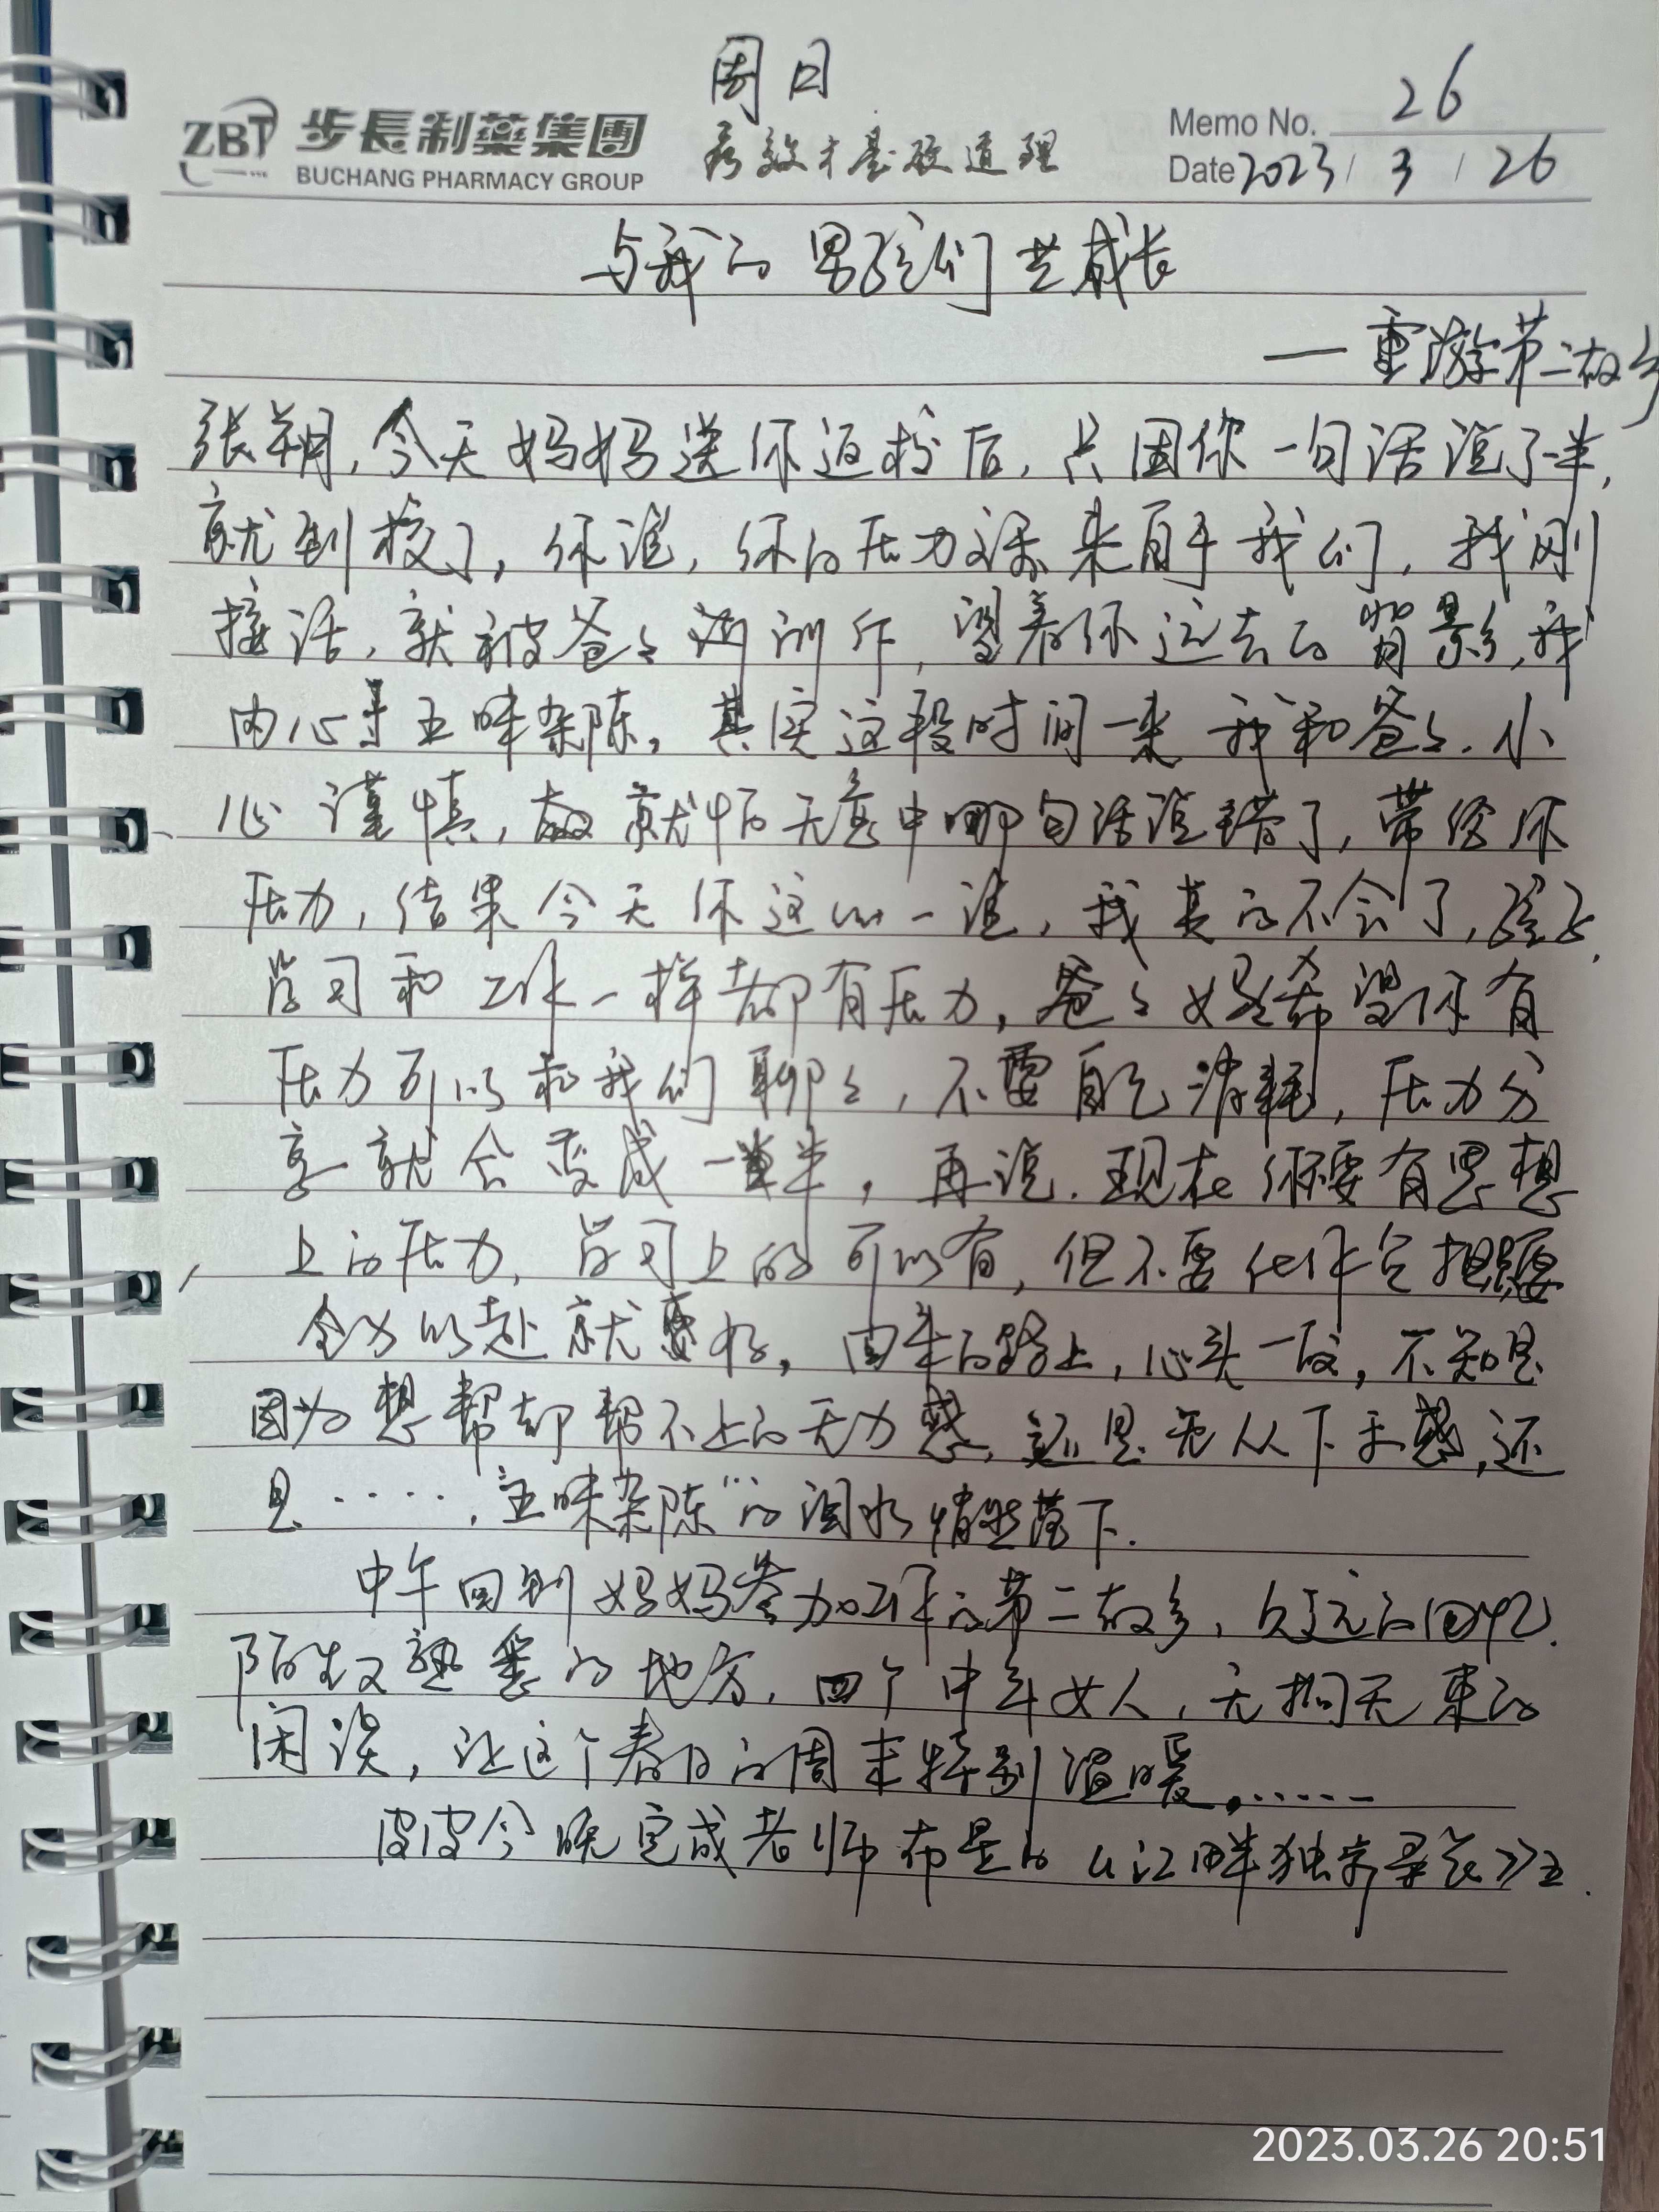 周日
ZBT 步長制藥集團
BUCHANG PHARMACY GROUP
疗效才是硬道理
Memo No. 26
Date 2023 / 3 / 26
与我的男孩们共成长
—重游第二故乡
张朔,今天妈妈送你返校后,只因你一句话说了一半,
就到校了,你说,你的压力源来自于我们,我刚
接话,就被爸爸训斥,望着你远去的背影,我
内心五味杂陈,其实这段时间一来我和爸爸.小
心谨慎,就怕无意中哪句话说错了,带给你
压力,结果今天你这么一说,我真的不会了,孩子,
学习和工作一样都有压力,爸爸妈妈希望你有
压力可以和我们聊聊,不要自己消耗,压力分
享就会变成一半,再说.现在你要有思想
上的压力,学习上的可以有,但不要
全力以赴就好,回来的路上,心头一酸,不知是
因为想帮却帮不上的无力感,还是无从下手感,还
是·····,"五味杂陈"的泪水悄然落下.
中午回到妈妈参加工作的第二故乡,久远的回忆.
陌生又熟悉的地方,四个中年女人,无拘无束的
闲谈,让这个春日的周末特别温暖,······
皮皮今晚完成老师布置的《江畔独步寻花》五.
2023.03.26 20:51